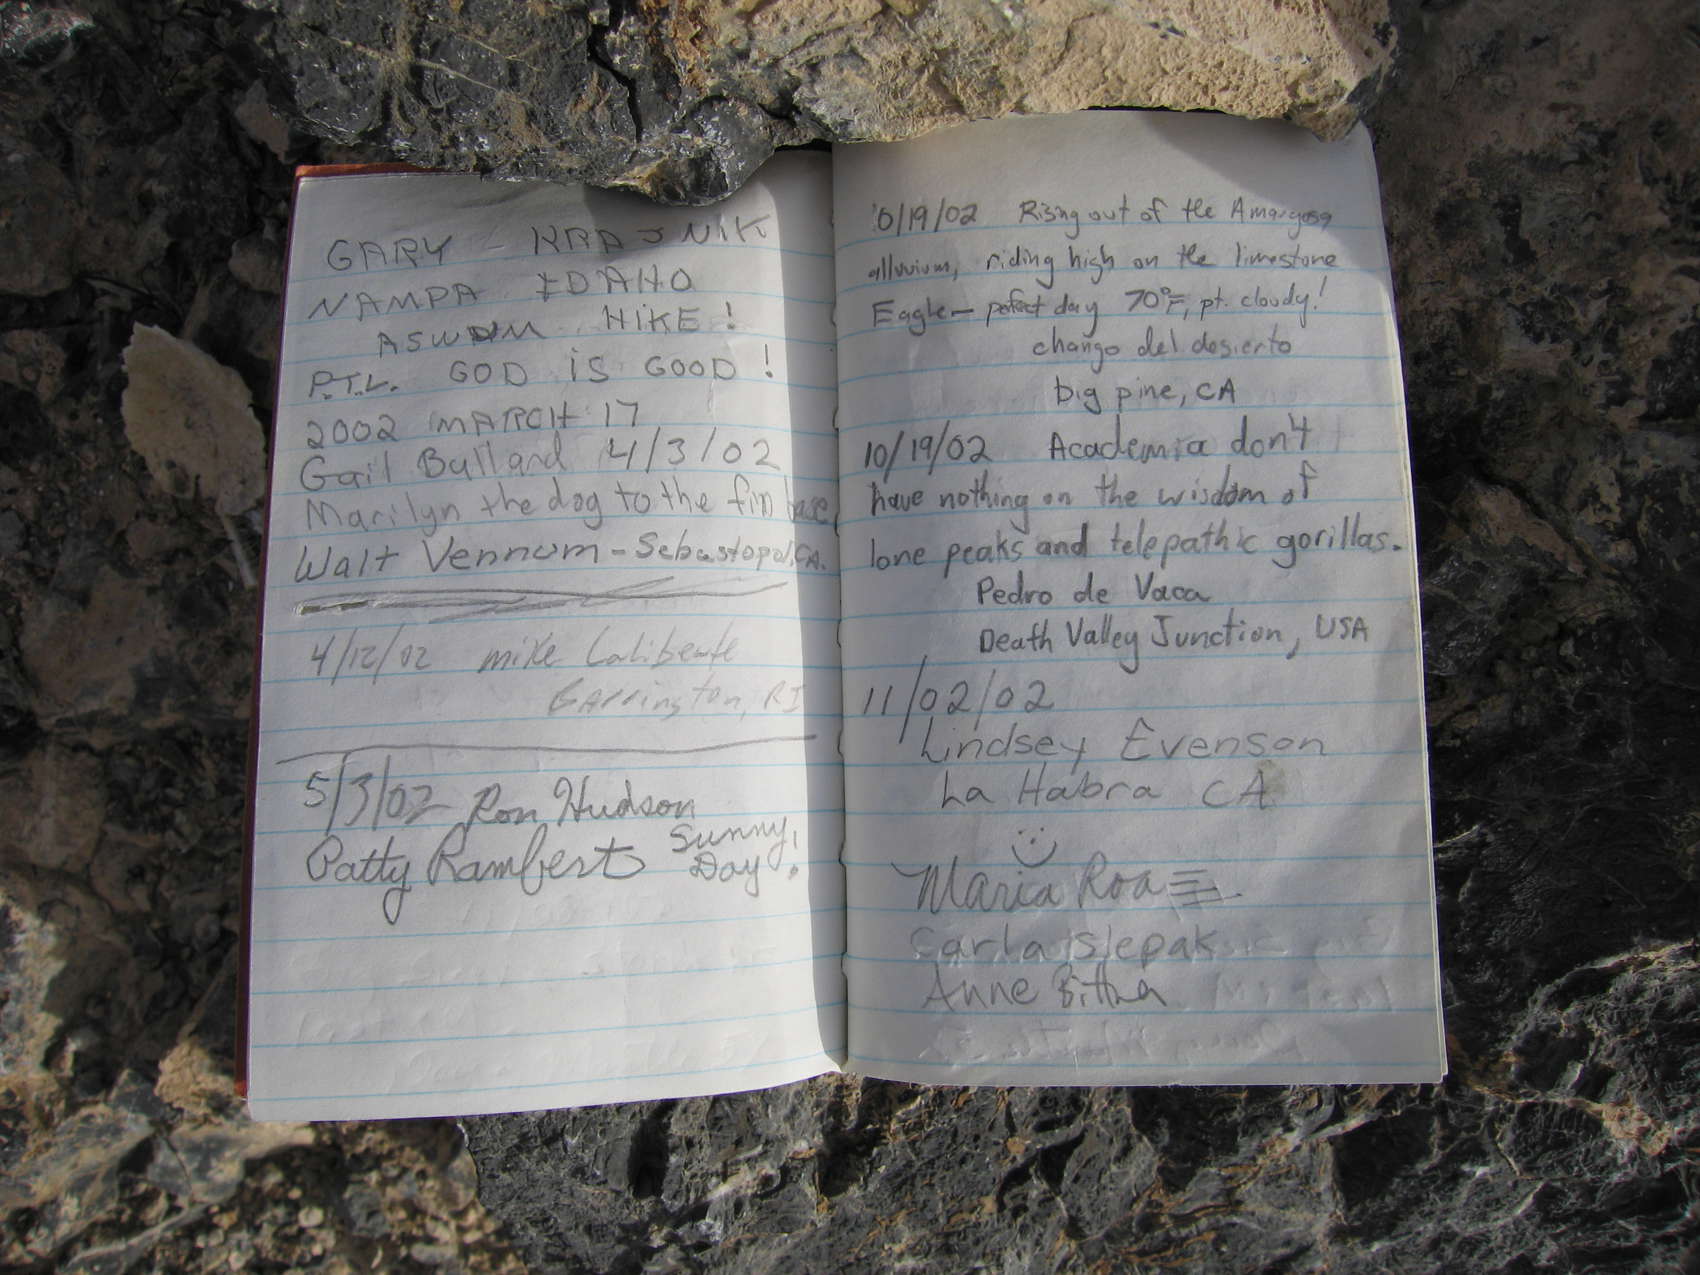 GARY KRAJNIK
NAMPA IDAHO
HIKE!
P.T.L. GOD iS GOOD!
2002 MARCH 17
Gail Bullard 4/3/02
Marilyn the dog to the
Walt Vennum - Sebastopol, CA.
4/12/02 mike
Barrington, RI
5/3/02 Ron Hudson
Patty Rambert Sunny
Day!
10/19/02 Rising out of the Amargosa
alluvium, riding high on the limestone
Eagle - perfect day 70°F, pt. cloudy!
chango del desierto
big pine, CA
10/19/02 Academia don't
have nothing on the wisdom of
lone peaks and telepathic gorillas.
Pedro de Vaca
Death Valley Junction, USA
11/02/02
Lindsey Evenson
La Habra CA
Maria Roa
Carla Slepak
Anne